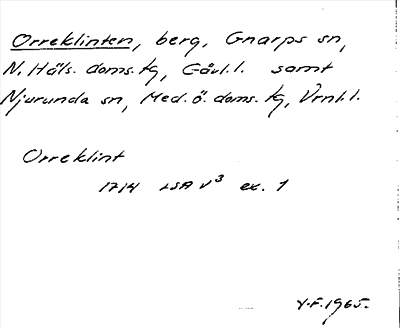 Orreklinten, berg, Gnarps sn,
N. Häls. doms. tg, Gävl. l. samt
Njurunda sn, Med. ö. doms. tg, Vrnl. l.
Orreklint
1714 LSA V³ ex. 1
Y.F. 1965.